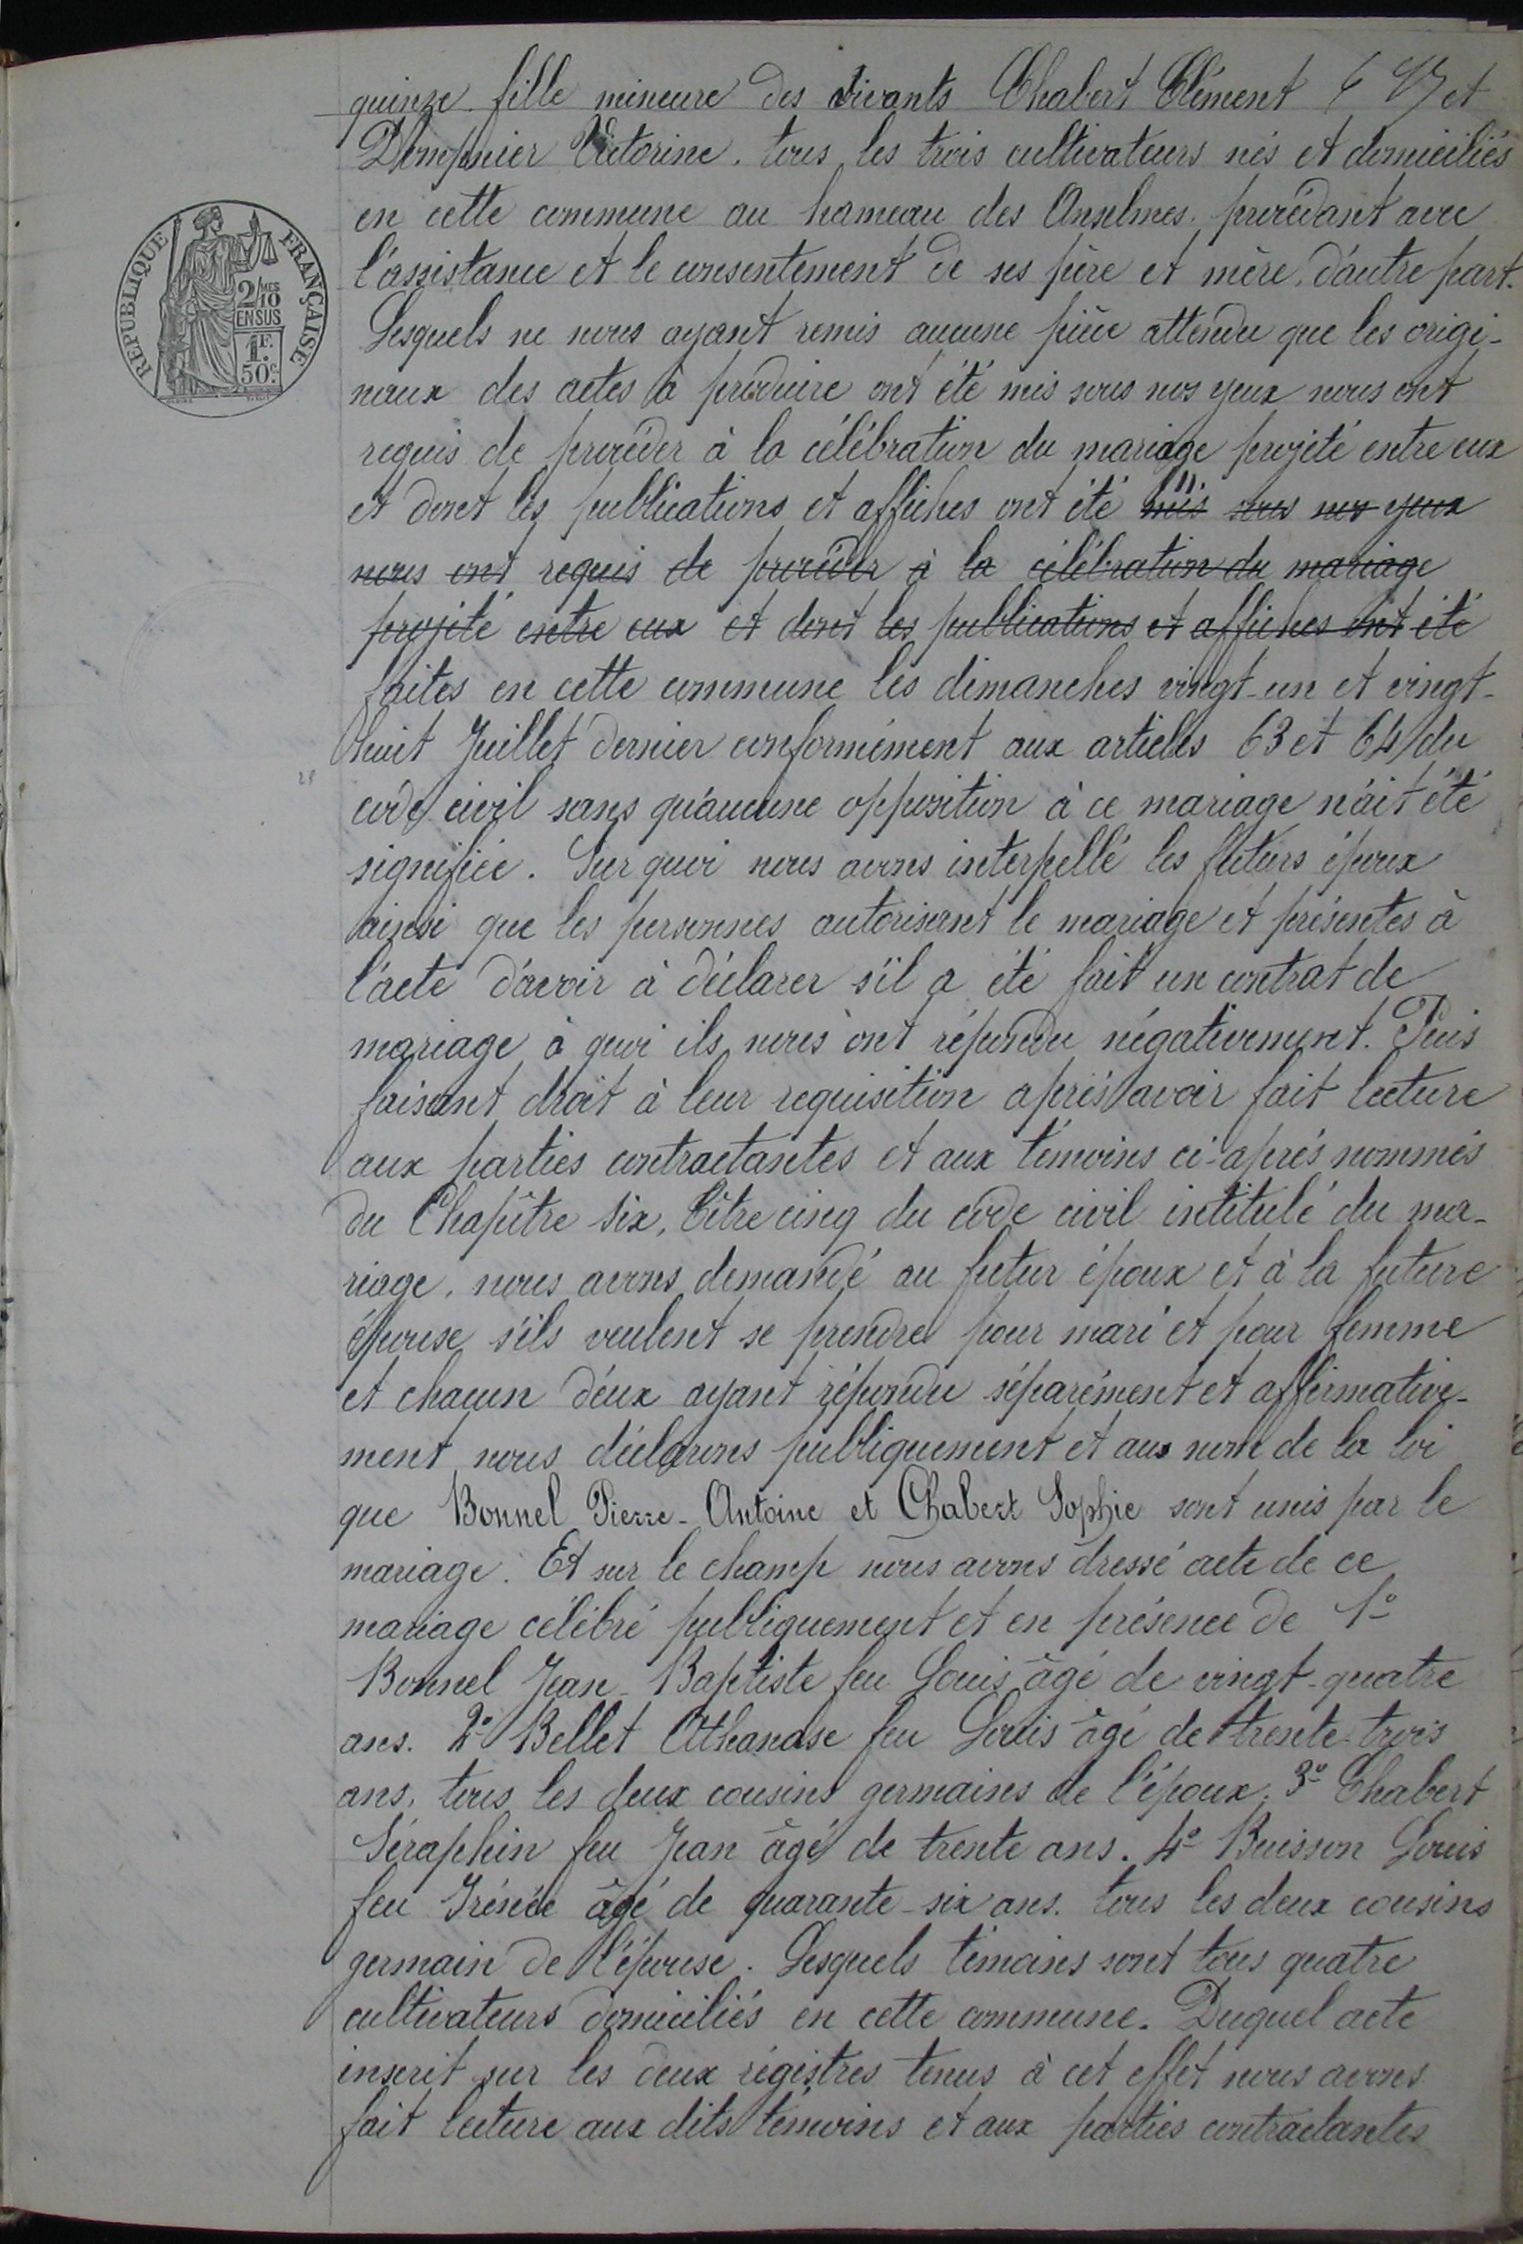 quinze fille mineure des vivants Chabert Clément et
Dompnier Victorine. tous les trois cultivateurs nés et domiciliés
en cette commune au hameau des Anselmes. procédant avec
l'assistance et le consentement de ses père et mère, d'autre part.
REPUBLIQUE FRANÇAISE
2/10MES
EN SUS
1F.
50c.
Lesquels ne nous ayant remis aucune pièce attendu que les origi-
naux des actes à produire ont été mis sous nos yeux nous ont
requis de procéder à la célébration du mariage projeté entre eux
et dont les publications et affiches ont été mis sous nos yeux
nous ont requis de procéder à la célébration du mariage
projété entre eux et dont les publications et affiches ont été
faites en cette commune les dimanches vingt-un et vingt-
huit Juillet dernier conformément aux articles 63 et 64 du
code civil sans qu'aucune opposition à ce mariage n'ait été
signifiée. Sur quoi nous avons interpellé les futurs époux
ainsi que les personnes autorisant le mariage et présentes à
l'acte d'avoir à déclarer s'il a été fait un contrat de
mariage à quoi ils nous ont répondu négativement. Puis
faisant droit à leur requisition après avoir fait lecture
aux parties contractantes et aux témoins ci-après nommés
du Chapître six, Titre cinq du code civil intitulé du ma-
riage, nous avons demandé au futur époux et à la future
épouse s'ils veulent se prendre pour mari et pour femme
et chacun d'eux ayant répondu séparément et affirmative-
ment nous déclarons publiquement et au nom de la loi
que Bonnel Pierre-Antoine et Chabert Sophie sont unis par le
mariage. Et sur le champ nous avons dressé acte de ce
mariage célébré publiquement et en présence de 1º
Bonnel Jean-Baptiste feu Louis âgé de vingt-quatre
ans. 2º Bellet Athanase feu Louis âgé de trente-trois
ans, tous les deux cousins germains de l'époux; 3º Chabert
Séraphin feu Jean âgé de trente ans. 4º Buisson Louis
feu Irénée âgé de quarante-six ans. tous les deux cousins
germain de l'épouse. Lesquels témoins sont tous quatre
cultivateurs domiciliés en cette commune. Duquel acte
inscrit sur les deux régistres tenus à cet effet nous avons
fait lecture aux dits témoins et aux parties contractantes